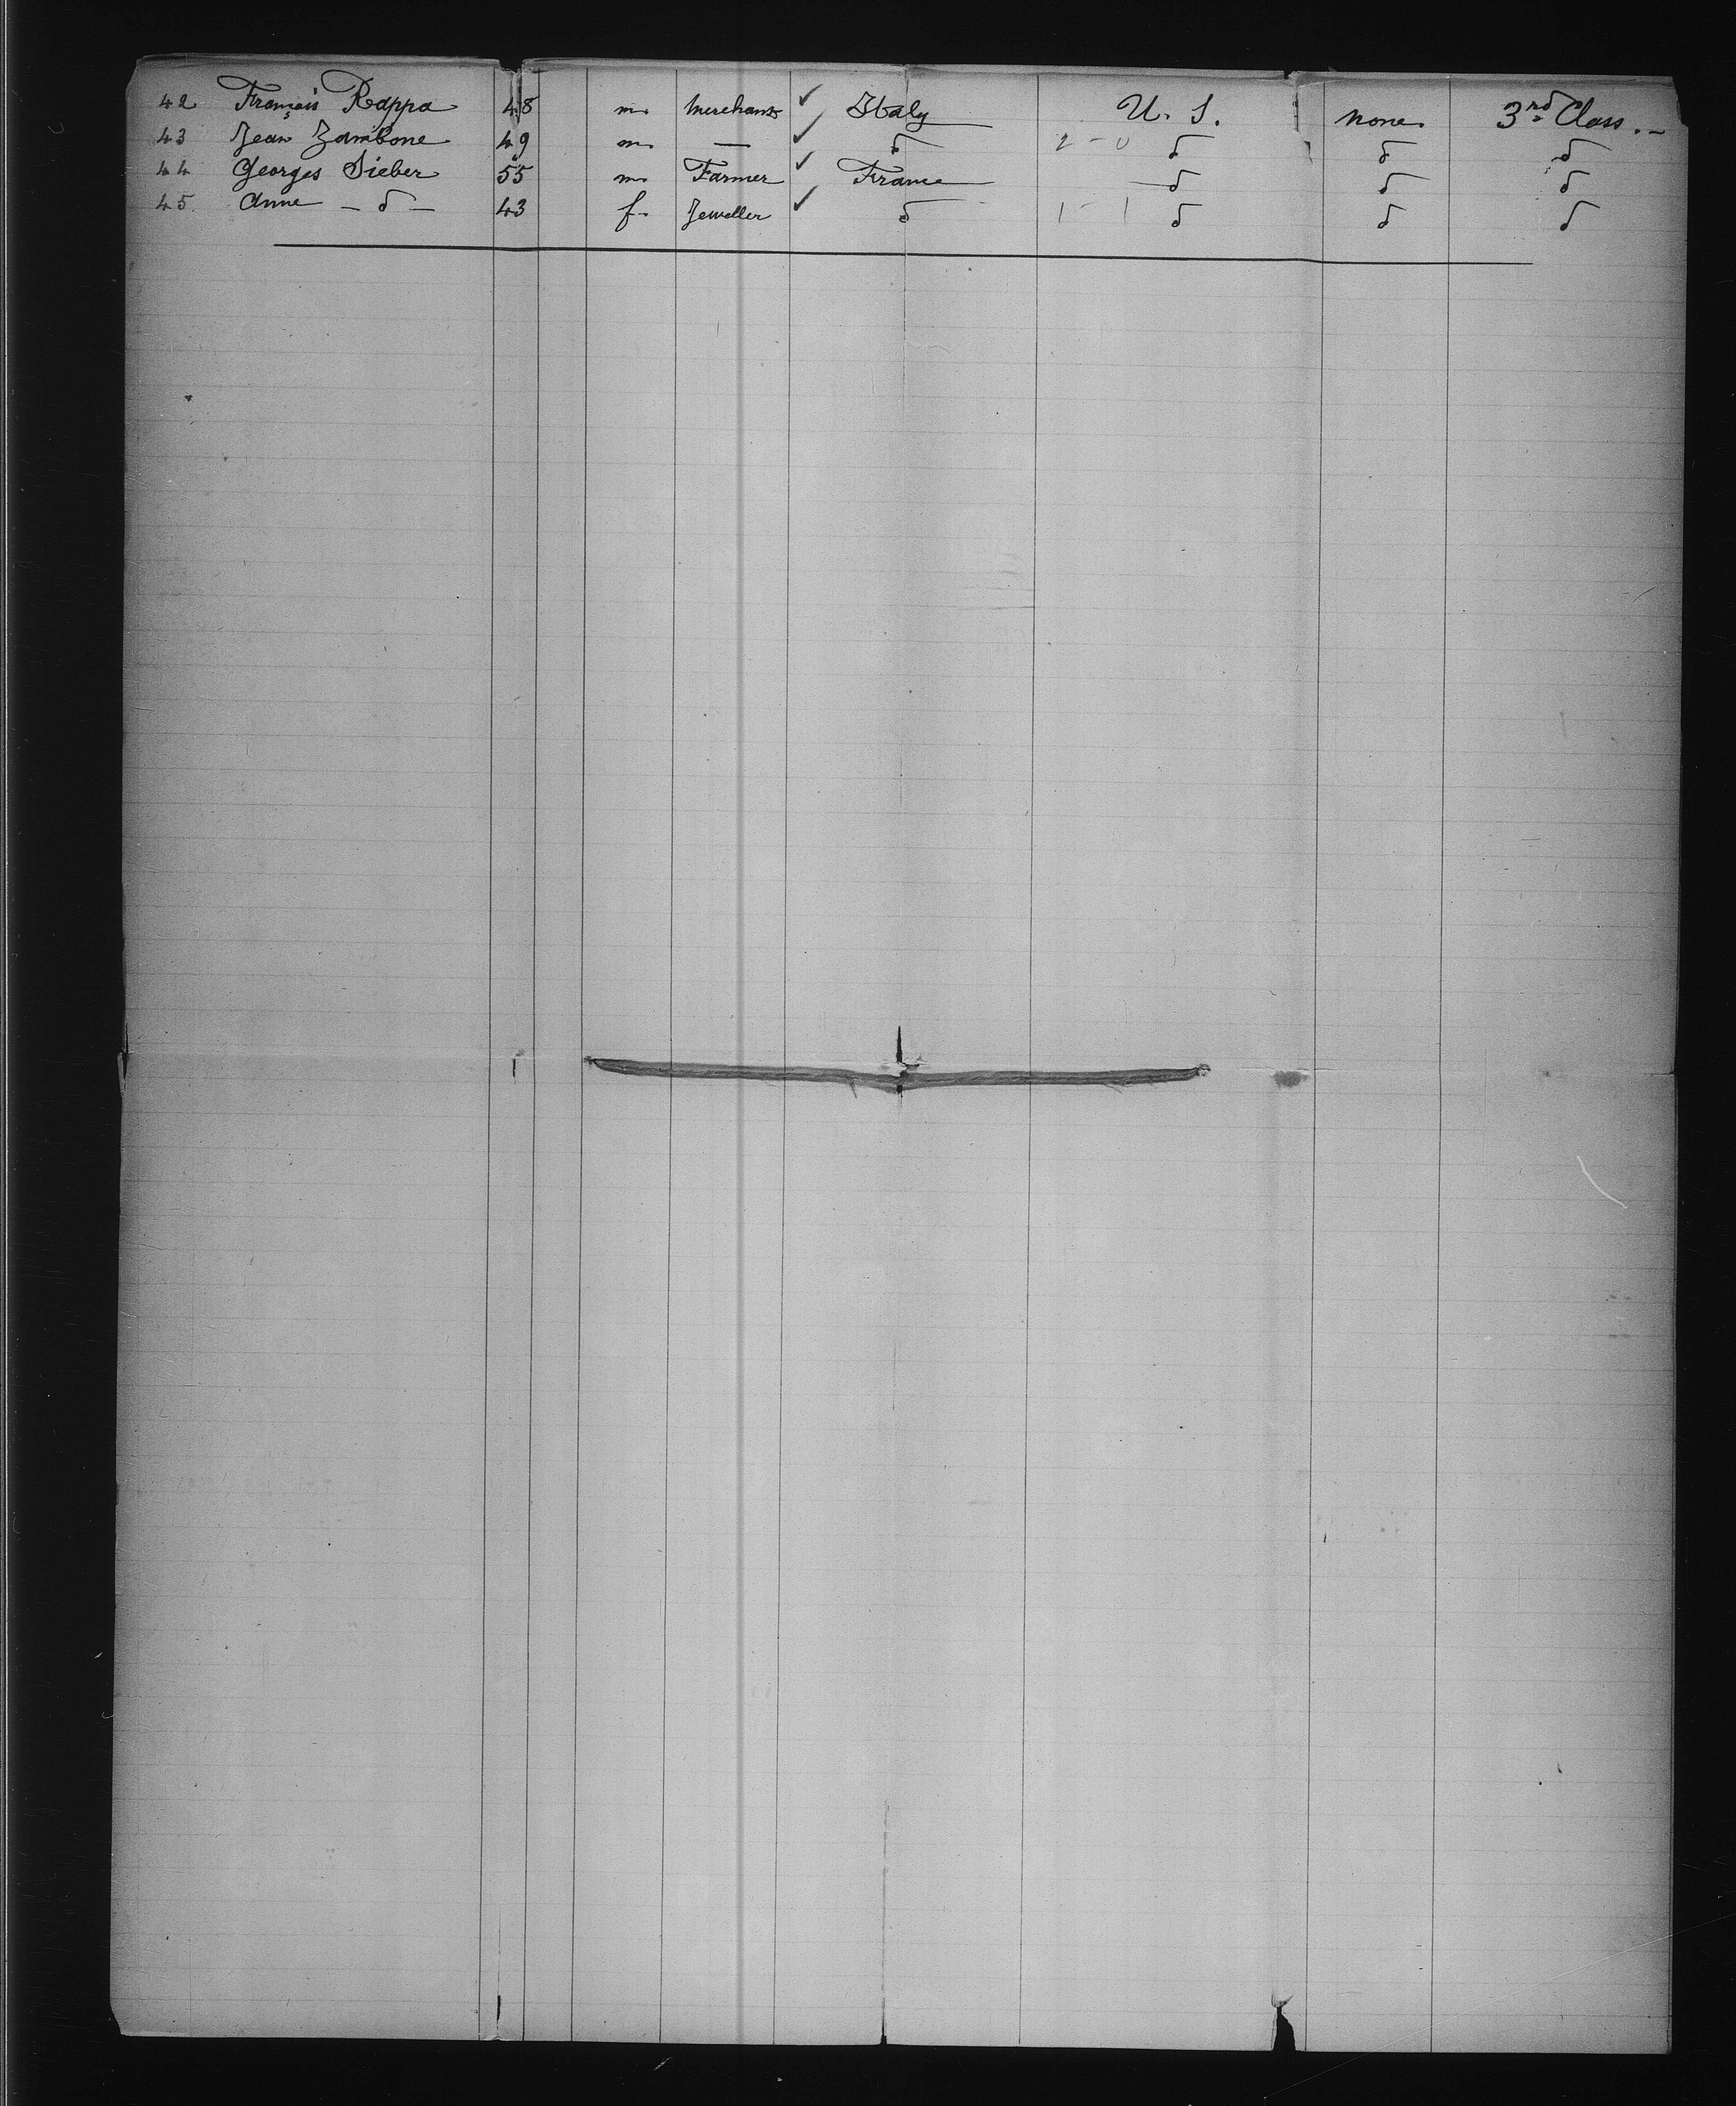 42 François Rappa 48 m. Merchant ✓ Italy U. S. none 3rd Class. –
43 Jean Zambone 49 m. — ✓ d 2 - 0 d d d
44 Georges Sieber 55 m. Farmer ✓ France d d d
45. Anne – d – 43 f. Jeweller ✓ d 1 - 1 d d d